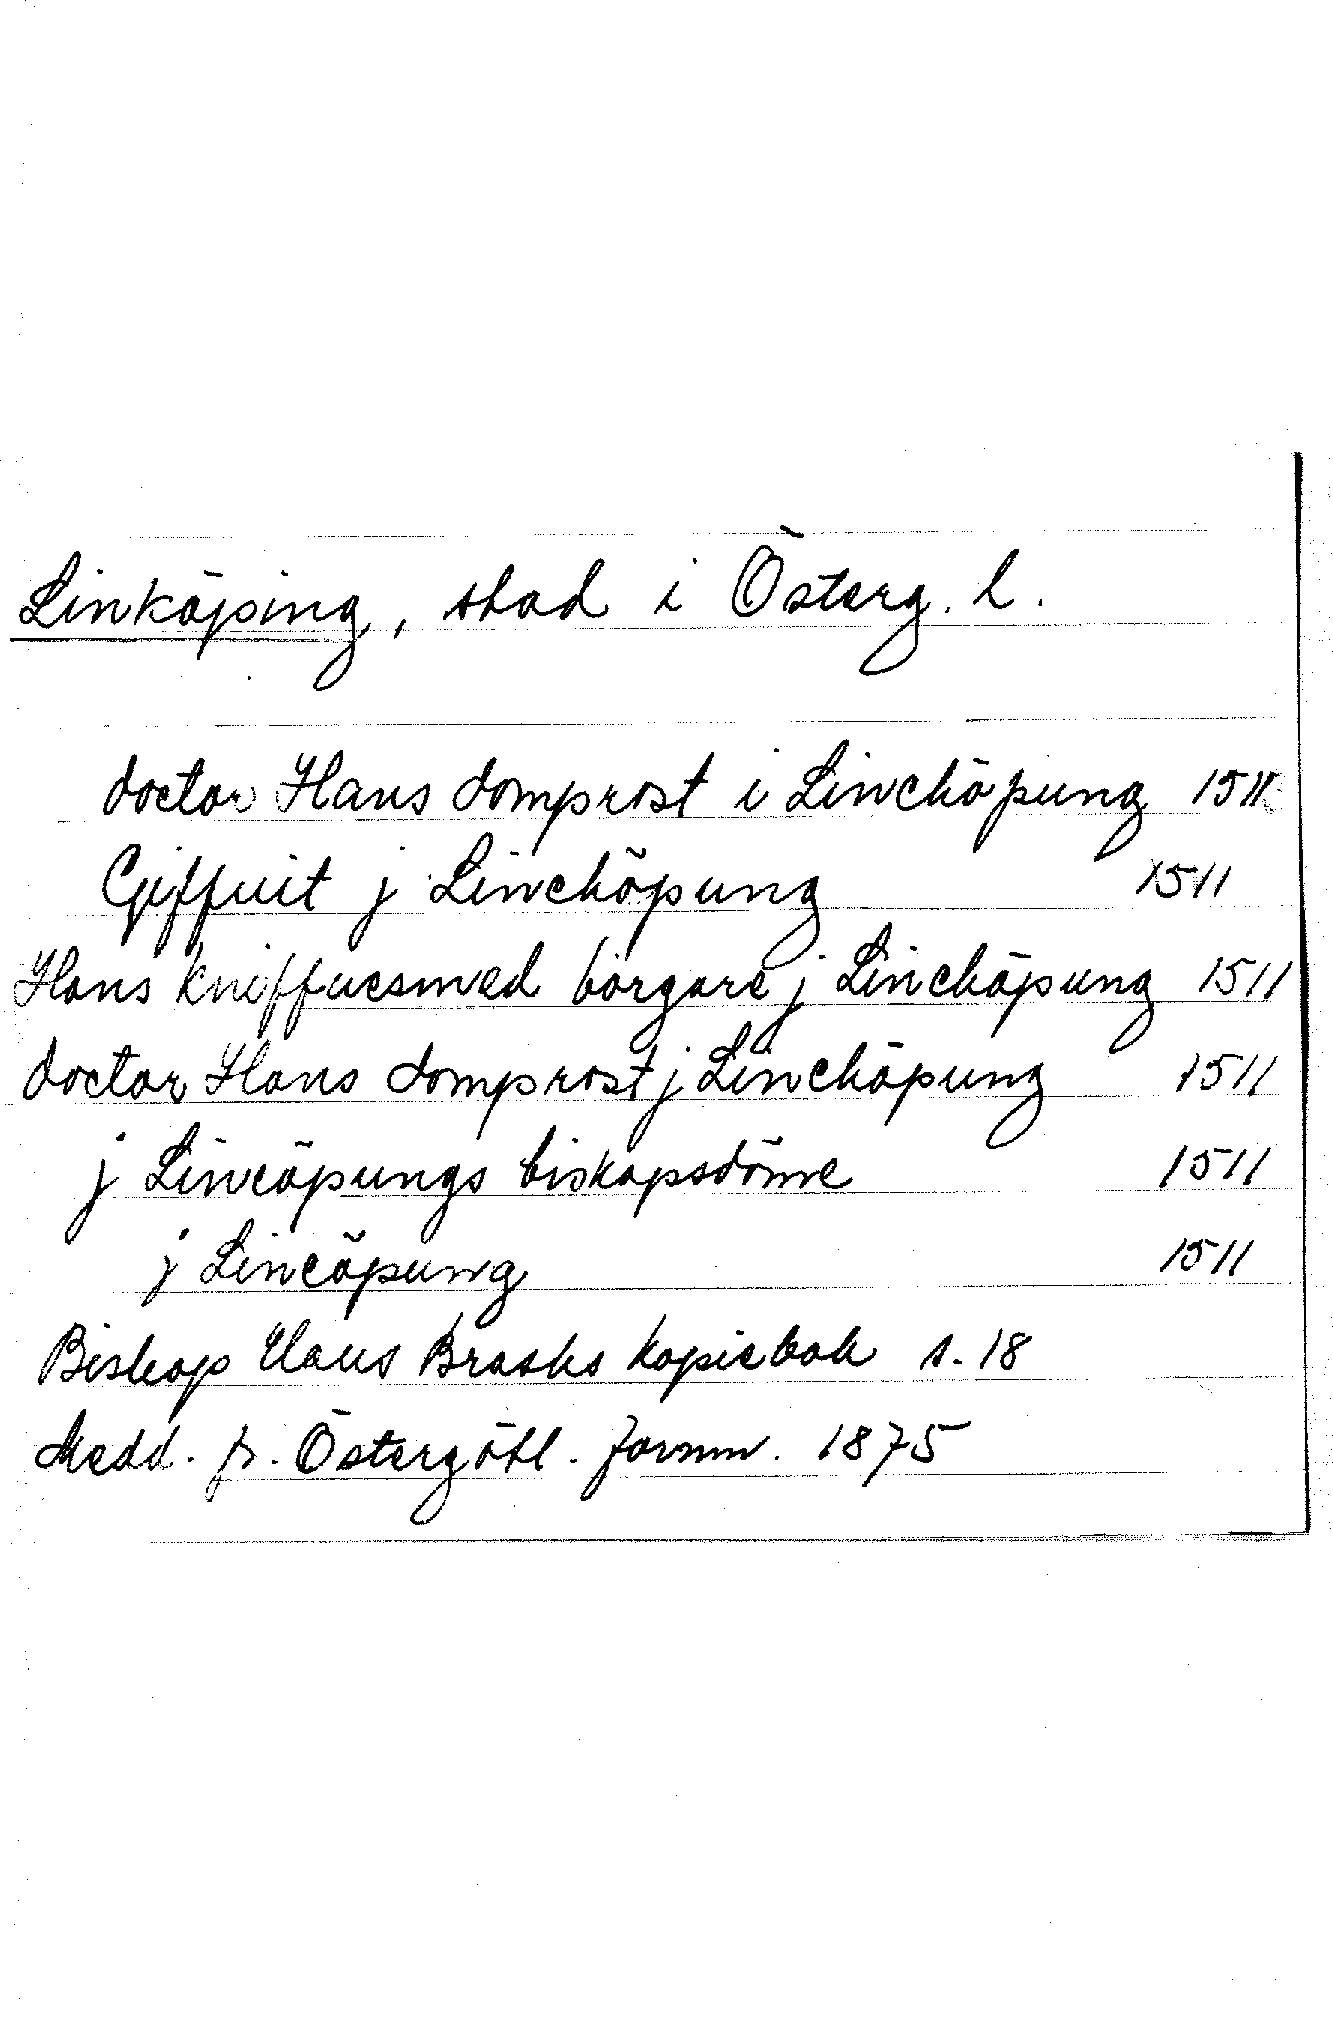 Linköping, stad i Österg. l.
doctor Hans domprost i Linchöpung 1511
Giffuit j Linchöpung 1511
Hans kniffuesmed börgare j Linchöpung 1511
doctor Hans domprost j Linchöpung 1511
j Lincöpungs biskopsdöme 1511
j Lincöpung 1511
Biskop Hans Brasks kopiebok s. 18
Medd. fr. Östergötl. fornm. 1875